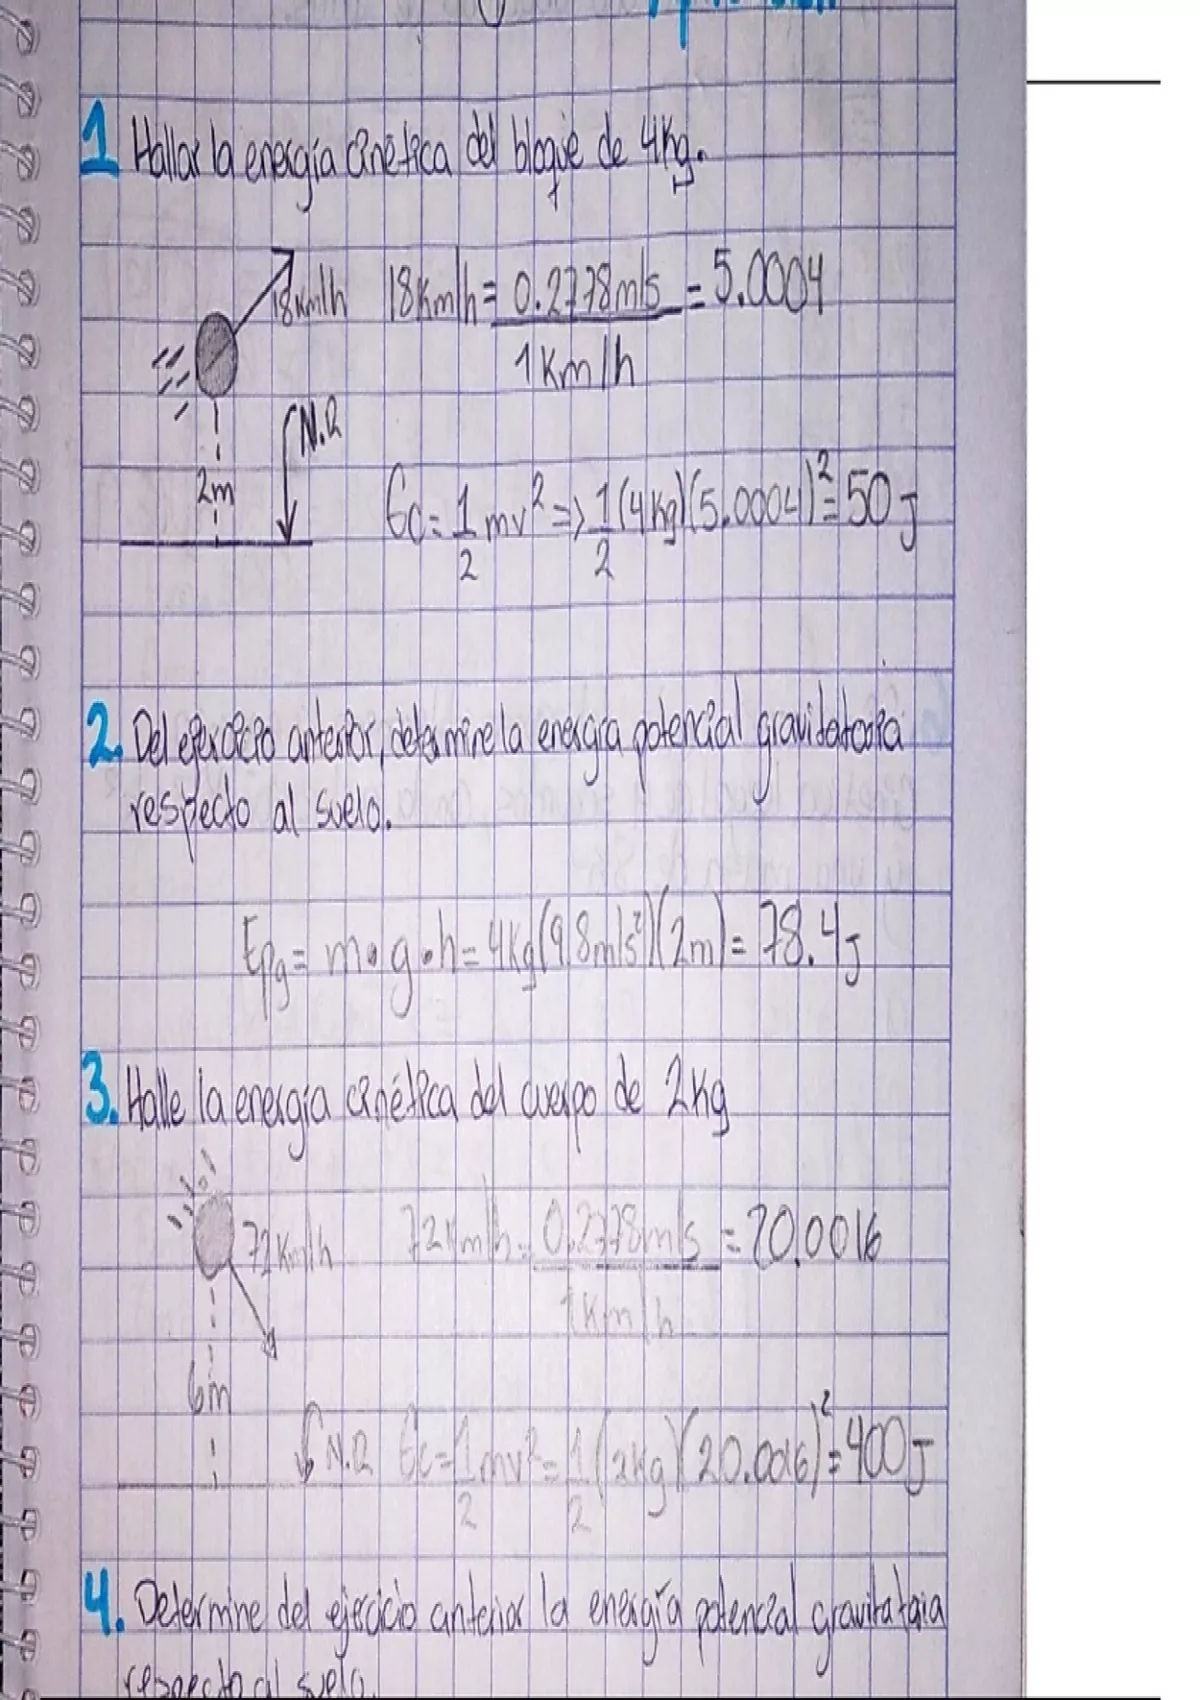 1 Hallar la energía cinética del bloque de 4Kg.
18Km/h 18Km/h = 0.2778m/s = 5.0004
1Km/h
N.R
2m
Ec = 1/2 mv² => 1/2 (4Kg)(5.0004)² = 50 J
2. Del ejercicio anterior, determine la energía potencial gravitatoria
respecto al suelo.
Epg = m•g•h = 4Kg(9.8m/s²)(2m) = 78.4J
3. Halle la energía cinética del cuerpo de 2Kg
72Km/h 72Km/h = 0.2778m/s = 20.0016
1Km/h
6m
N.R Ec = 1/2 mv² = 1/2 (2Kg)(20.0016)² = 400J
4. Determine del ejercicio anterior la energía potencial gravitatoria
respecto al suelo.